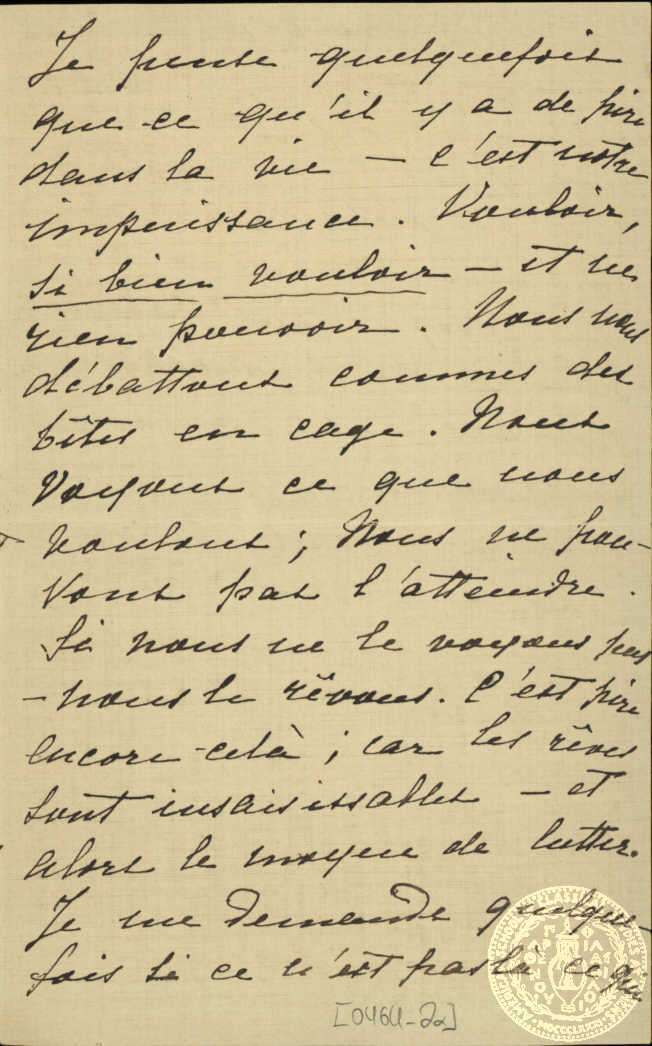 Je pense quelquefois
que ce qu'il y a de pire
dans la vie — c'est notre
impuissance. Vouloir,
si bien vouloir — et ne
rien pouvoir. Nous nous
débattons commes des
bêtes en cage. Nous
voyons ce que nous
voulons; Nous ne pou-
vons pas l'atteindre.
Si nous ne le voyons pas
— nous le rêvons. C'est pire
encore celà; car les rêves
sont insaisissables — et
alors le moyen de lutter.
Je me demande quelque-
fois si ce n'est pas là ce qui
[0464-2α]
MDCCCLXXXI